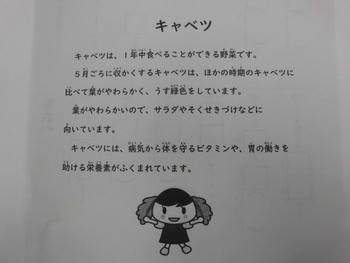 キャベツ
キャベツは、１年中食べることができる野菜です。
５月ごろに収かくするキャベツは、ほかの時期のキャベツに
比べて葉がやわらかく、うす緑色をしています。
葉がやわらかいので、サラダやそくせきづけなどに
向いています。
キャベツには、病気から体を守るビタミンや、胃の働きを
助ける栄養素がふくまれています。